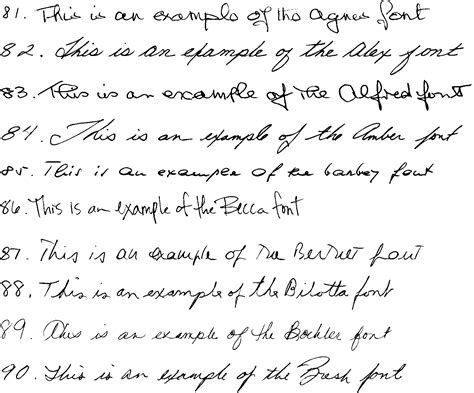 81. This is an example of the Agnes font
82. This is an example of the Alex font
83. This is an example of the Alfred font
84. This is an example of the Amber font
85. This is an example of the barbey font
86. This is an example of the Becca font
87. This is an example of the Bertiet font
88. This is an example of the Bilotta font
89. This is an example of the Bockler font
90. This is an example of the Bash font